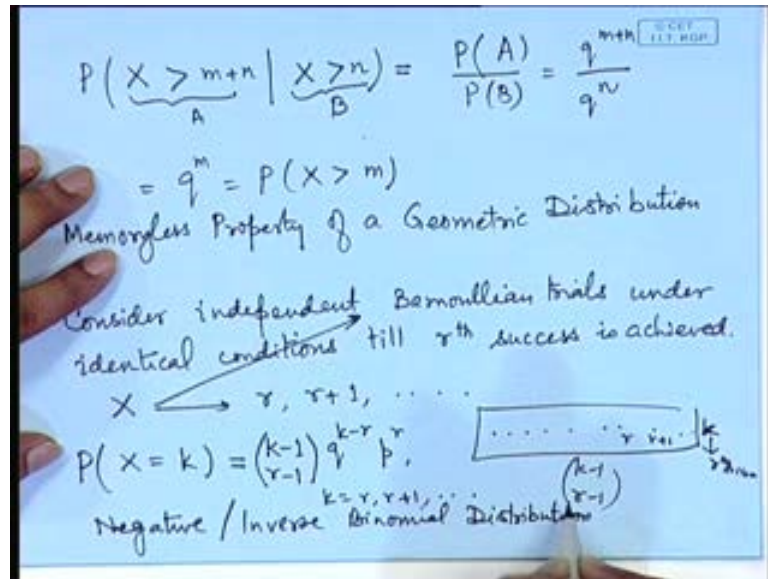 © CET
I.I.T. KGP
P( X > m+n | X > n ) = P(A) / P(B) = q^{m+n} / q^n
A B
= q^m = P(X > m)
Memoryless Property of a Geometric Distribution
Consider independent Bernoullian trials under
identical conditions till rth success is achieved.
X → r, r+1, ....
P(X = k) = (k-1 r-1) q^{k-r} p^r,
k = r, r+1, ...
r r+1 k
(k-1 r-1)
Negative / Inverse Binomial Distribution